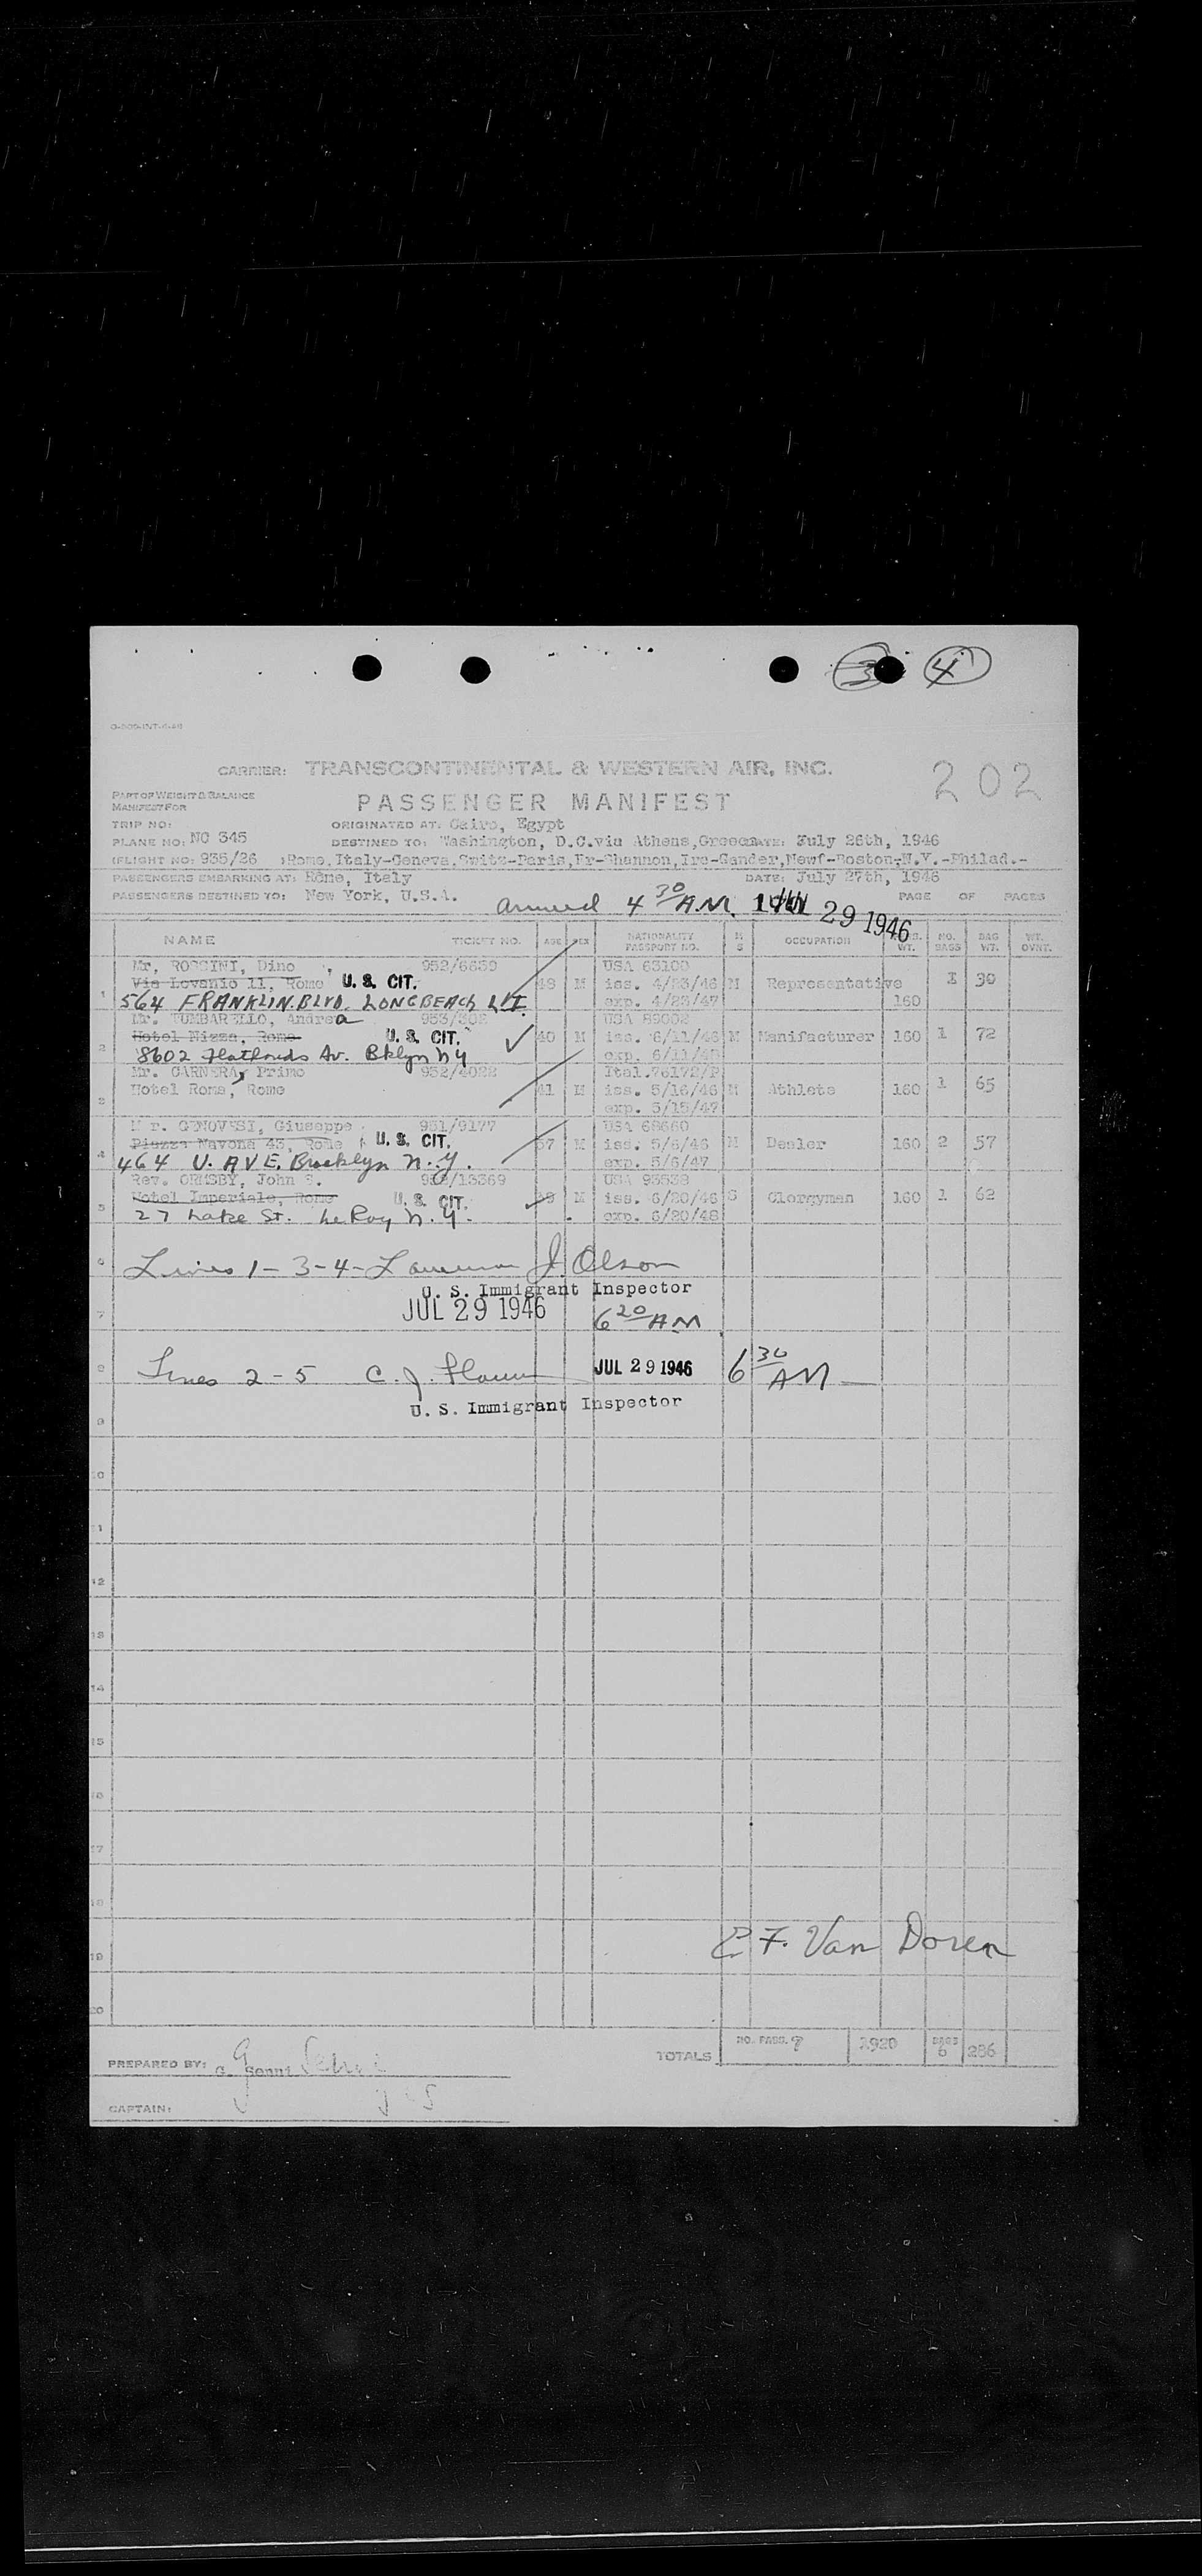 3 4
CARRIER: TRANSCONTINENTAL & WESTERN AIR, INC.
202
PART OF WEIGHT & BALANCE
MANIFEST FOR
PASSENGER MANIFEST
TRIP NO:
ORIGINATED AT: Cairo, Egypt
PLANE NO: NC 345
DESTINED TO: Washington, D.C.via Athens,Greece DATE: July 26th, 1946
FLIGHT NO: 935/26 :Rome,Italy-Geneva.Switz-Paris,Fr-Shannon,Ire-Gander,Newf-Boston-N.Y.-Philad.-
PASSENGERS EMBARKING AT: Rome, Italy
DATE: July 27th, 1946
PASSENGERS DESTINED TO: New York, U.S.A.
arrived 4 30 A.M. JUL 29 1946
PAGE OF PAGES
NAME TICKET NO. AGE SEX NATIONALITY PASSPORT NO. M S OCCUPATION WT. NO. BAGS BAG WT. WT. OVNT.
1 Mr, ROSSINI, Dino 952/6639 USA 63100
Via Lovanio 11, Rome U. S. CIT. 48 M iss. 4/23/46 M Representative 1 30
564 FRANKLIN.BLVD. LONGBEACH L.I. exp. 4/23/47 160
2 Mr. TUMBARELLO, Andrea USA
Hotel Nizza, Rome U. S. CIT. 40 M iss. 6/11/46 M Manifacturer 160 1 72
8602 Flatlands Av. Bklyn NY exp. 6/11/48
3 Mr. CARNERA, Primo 952/4022 Ital.76172/P
Hotel Roma, Rome 41 M iss. 5/16/46 M Athlete 160 1 65
exp. 5/15/47
4 Mr. GENOVESI, Giuseppe 951/9177 USA 68660
Piazza Navona 45, Rome U. S. CIT. 57 M iss. 5/6/46 M Dealer 160 2 57
464 U. AVE. Brooklyn N.Y. exp. 5/6/47
5 Rev. ORMSBY, John S. USA 93538
Hotel Imperiale, Rome U. S. CIT. M iss. 6/20/46 S Clergyman 160 1 62
27 Lake St. LeRoy N.Y. exp. 6/20/48
6 Lines 1-3-4- J. Olson
U. S. Immigrant Inspector
7 JUL 29 1946 6 20 AM
8 Lines 2-5 C. J. JUL 29 1946 6 30 AM
U. S. Immigrant Inspector
9
10
11
12
13
14
15
16
17
18
E. F. Van Doren
19
20
TOTALS NO. PASS. BAGS 6 286
PREPARED BY: G.
CAPTAIN: